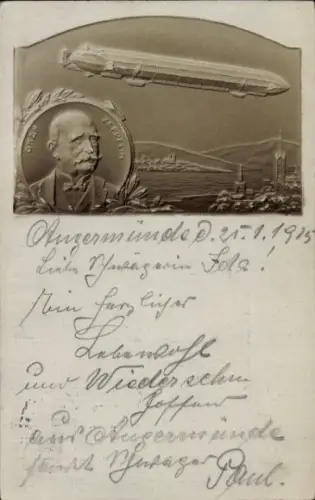 GRAF ZEPPELIN
Angermünde d. 25.1.1915
Liebe Schwägerin Ida!
Ein herzlicher
Lebewohl
und Wiedersehn
hoffend
aus Angermünde
sendet Schwager
Paul.